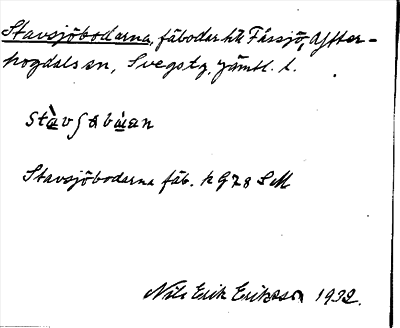 Stavsjöbodarna, fäbodar till Fåssjö, Ytter-
hogdals sn, Svegs tg, Jämtl. l.
Stavsjöbodarna fäb. k 978 SM
Nils Erik Eriksson 1932.